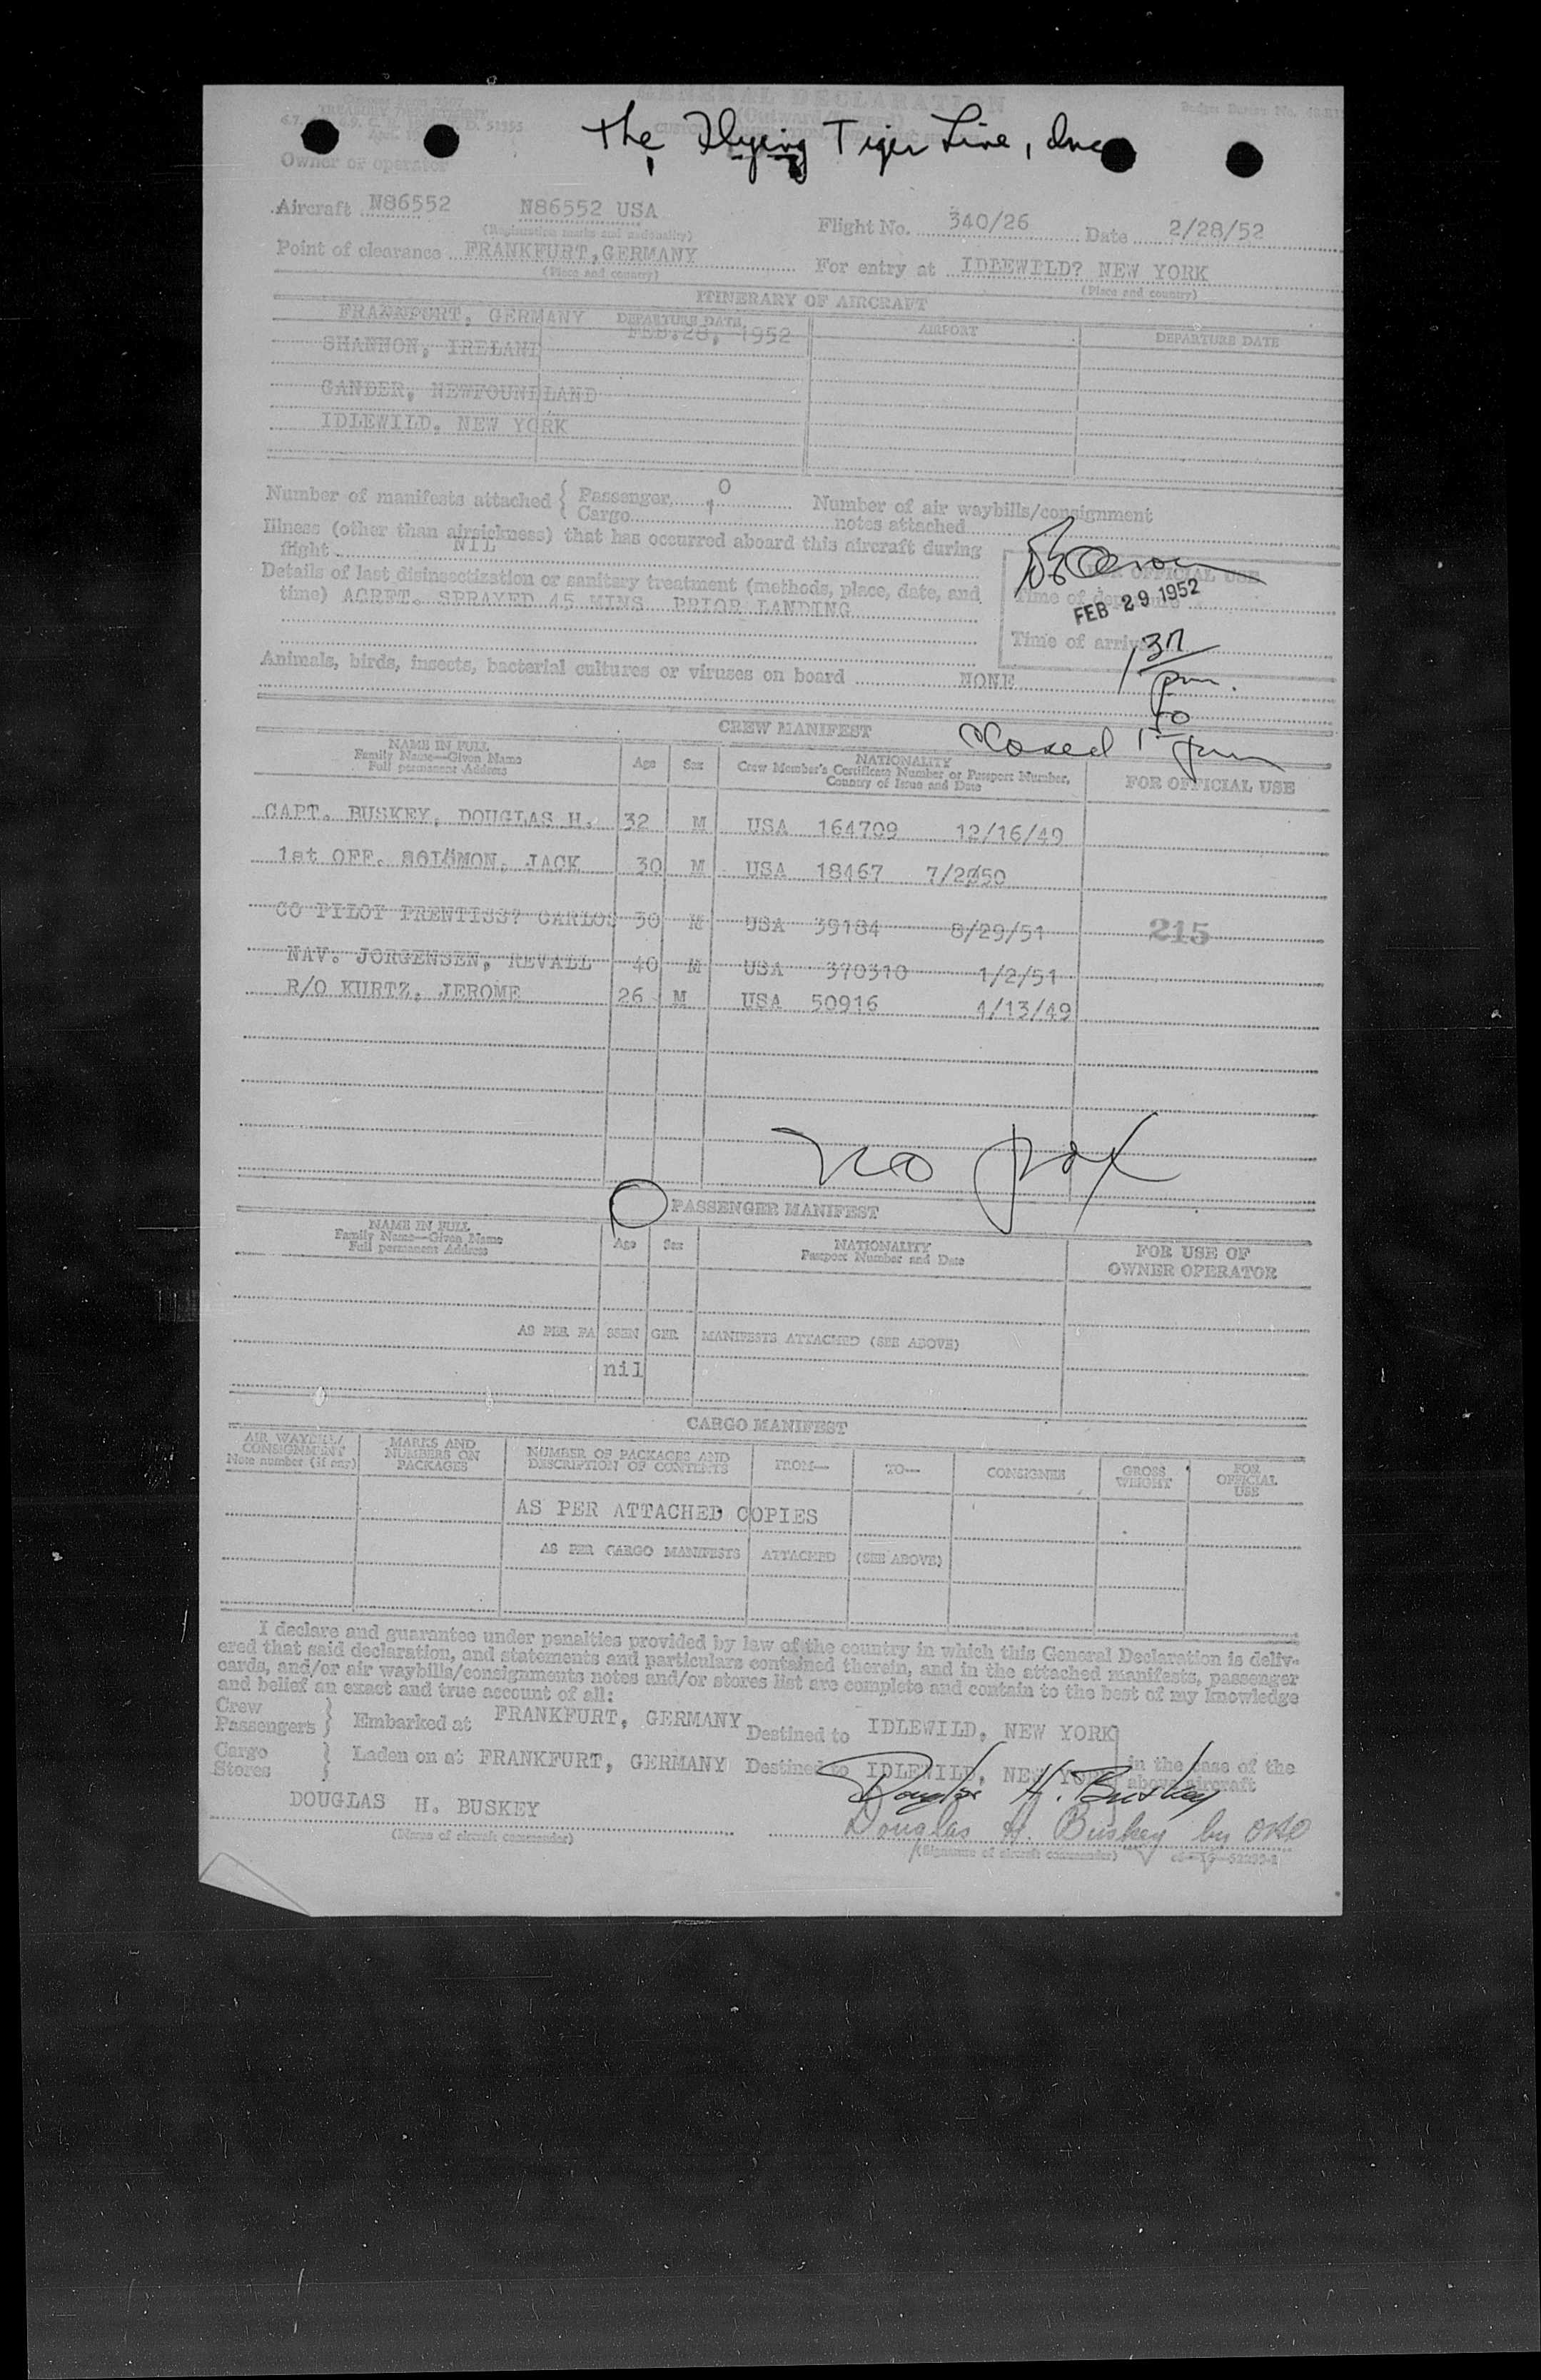 GENERAL DECLARATION
TREASURY DEPARTMENT
The Flying Tiger Line, Inc
Owner or operator
Aircraft N86552 N86552 USA Flight No. 340/26 Date 2/28/52
(Registration marks and nationality)
Point of clearance FRANKFURT, GERMANY For entry at IDLEWILD? NEW YORK
(Place and country) (Place and country)
ITINERARY OF AIRCRAFT
DEPARTURE DATE AIRPORT DEPARTURE DATE
FRANKFURT, GERMANY FEB.28, 1952
SHANNON, IRELAND
GANDER, NEWFOUNDLAND
IDLEWILD, NEW YORK
Number of manifests attached { Passenger 0 Number of air waybills/consignment
Cargo 1 notes attached
Illness (other than airsickness) that has occurred aboard this aircraft during
flight NIL
FOR OFFICIAL USE
Details of last disinsectization or sanitary treatment (methods, place, date, and
time) ACRFT. SPRAYED 45 MINS PRIOR LANDING
Time of departure
FEB 29 1952
Time of arrival
pm.
Animals, birds, insects, bacterial cultures or viruses on board NONE
Closed 1 50 pm
CREW MANIFEST
NAME IN FULL
Family Name—Given Name
Full permanent Address
Age Sex
NATIONALITY
Crew Member's Certificate Number or Passport Number,
Country of Issue and Date
FOR OFFICIAL USE
CAPT. BUSKEY, DOUGLAS H. 32 M USA 164709 12/16/49
1st OFF. SOLOMON, JACK 30 M USA 18467 7/2050
CO PILOT PRENTISS? CARLOS 30 M USA 39184 8/29/51
215
NAV. JORGENSEN, REVALL 40 M USA 370310 1/2/51
R/O KURTZ, JEROME 26 M USA 50916 4/13/49
No pax
O PASSENGER MANIFEST
NAME IN FULL
Family Name—Given Name
Full permanent Address
Age Sex
NATIONALITY
Passport Number and Date
FOR USE OF
OWNER OPERATOR
AS PER PASSENGER MANIFESTS ATTACHED (SEE ABOVE)
nil
CARGO MANIFEST
AIR WAYBILL/
CONSIGNMENT
Note number (if any)
MARKS AND
NUMBERS ON
PACKAGES
NUMBER OF PACKAGES AND
DESCRIPTION OF CONTENTS
FROM— TO— CONSIGNEE
GROSS
WEIGHT
FOR
OFFICIAL
USE
AS PER ATTACHED COPIES
AS PER CARGO MANIFESTS ATTACHED (SEE ABOVE)
I declare and guarantee under penalties provided by law of the country in which this General Declaration is deliv-
ered that said declaration, and statements and particulars contained therein, and in the attached manifests, passenger
cards, and/or air waybills/consignments notes and/or stores list are complete and contain to the best of my knowledge
and belief an exact and true account of all:
Crew
Passengers } Embarked at FRANKFURT, GERMANY Destined to IDLEWILD, NEW YORK
Cargo
Stores } Laden on at FRANKFURT, GERMANY Destined to IDLEWILD, NEW YORK in the case of the
above aircraft
Douglas H. Buskey
DOUGLAS H. BUSKEY
Douglas H. Buskey by
(Name of aircraft commander) (Signature of aircraft commander)